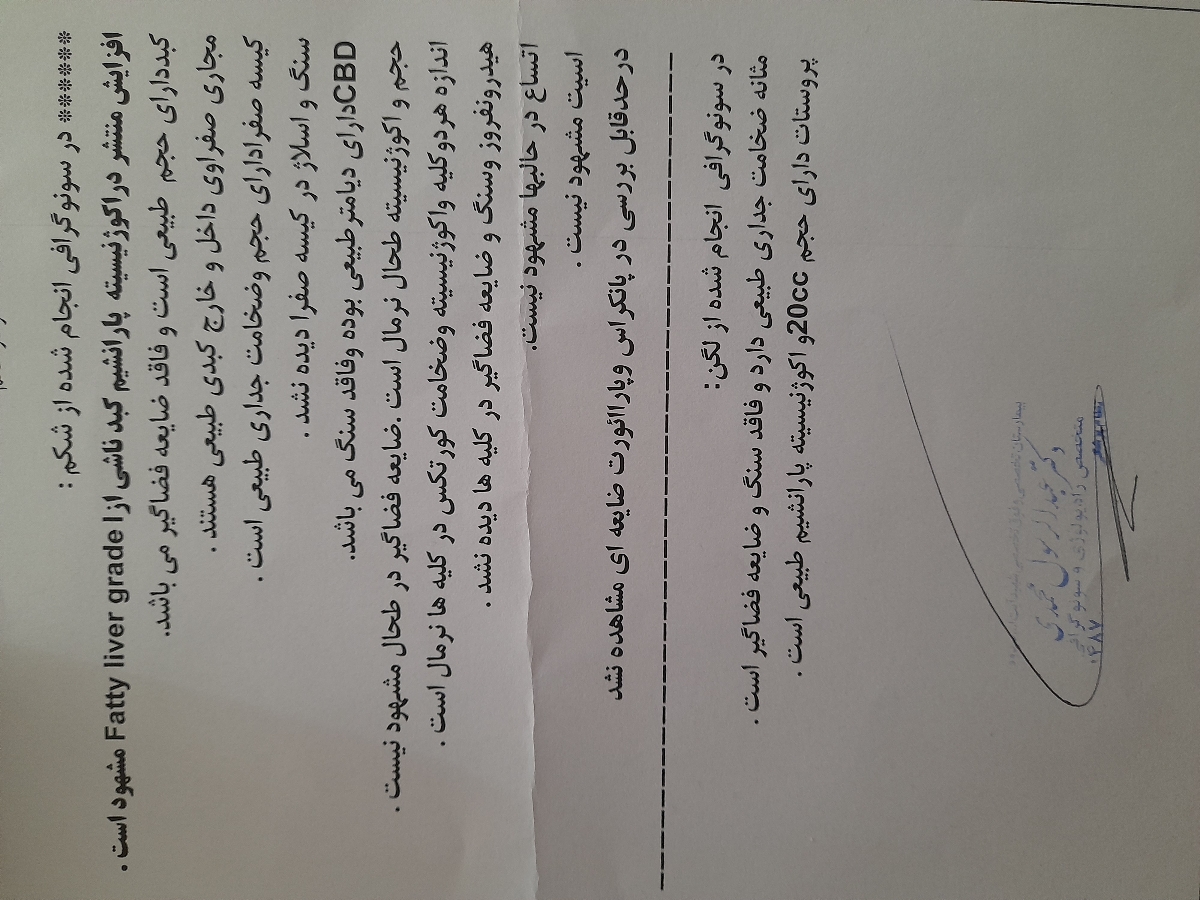 ****** در سونوگرافی انجام شده از شکم :
افزایش منتشر دراکوژنیسیته پارانشیم کبد ناشی از Fatty liver grade I مشهود است .
کبددارای حجم طبیعی است و فاقد ضایعه فضاگیر می باشد.
مجاری صفراوی داخل و خارج کبدی طبیعی هستند .
کیسه صفرادارای حجم وضخامت جداری طبیعی است .
سنگ و اسلاژ در کیسه صفرا دیده نشد .
CBDدارای دیامترطبیعی بوده وفاقد سنگ می باشد.
حجم و اکوژنیسیته طحال نرمال است .ضایعه فضاگیر در طحال مشهود نیست .
اندازه هردوکلیه واکوژنیسیته وضخامت کورتکس در کلیه ها نرمال است .
هیدرونفروز وسنگ و ضایعه فضاگیر در کلیه ها دیده نشد .
اتساع در حالبها مشهود نیست.
اسیت مشهود نیست .
درحدقابل بررسی در پانکراس وپارائورت ضایعه ای مشاهده نشد
در سونوگرافی انجام شده از لگن:
مثانه ضخامت جداری طبیعی دارد و فاقد سنگ و ضایعه فضاگیر است .
پروستات دارای حجم 20ccو اکوژنیسیته پارانشیم طبیعی است .
دکتر عبدالرسول محمدی
متخصص رادیولوژی و سونوگرافی